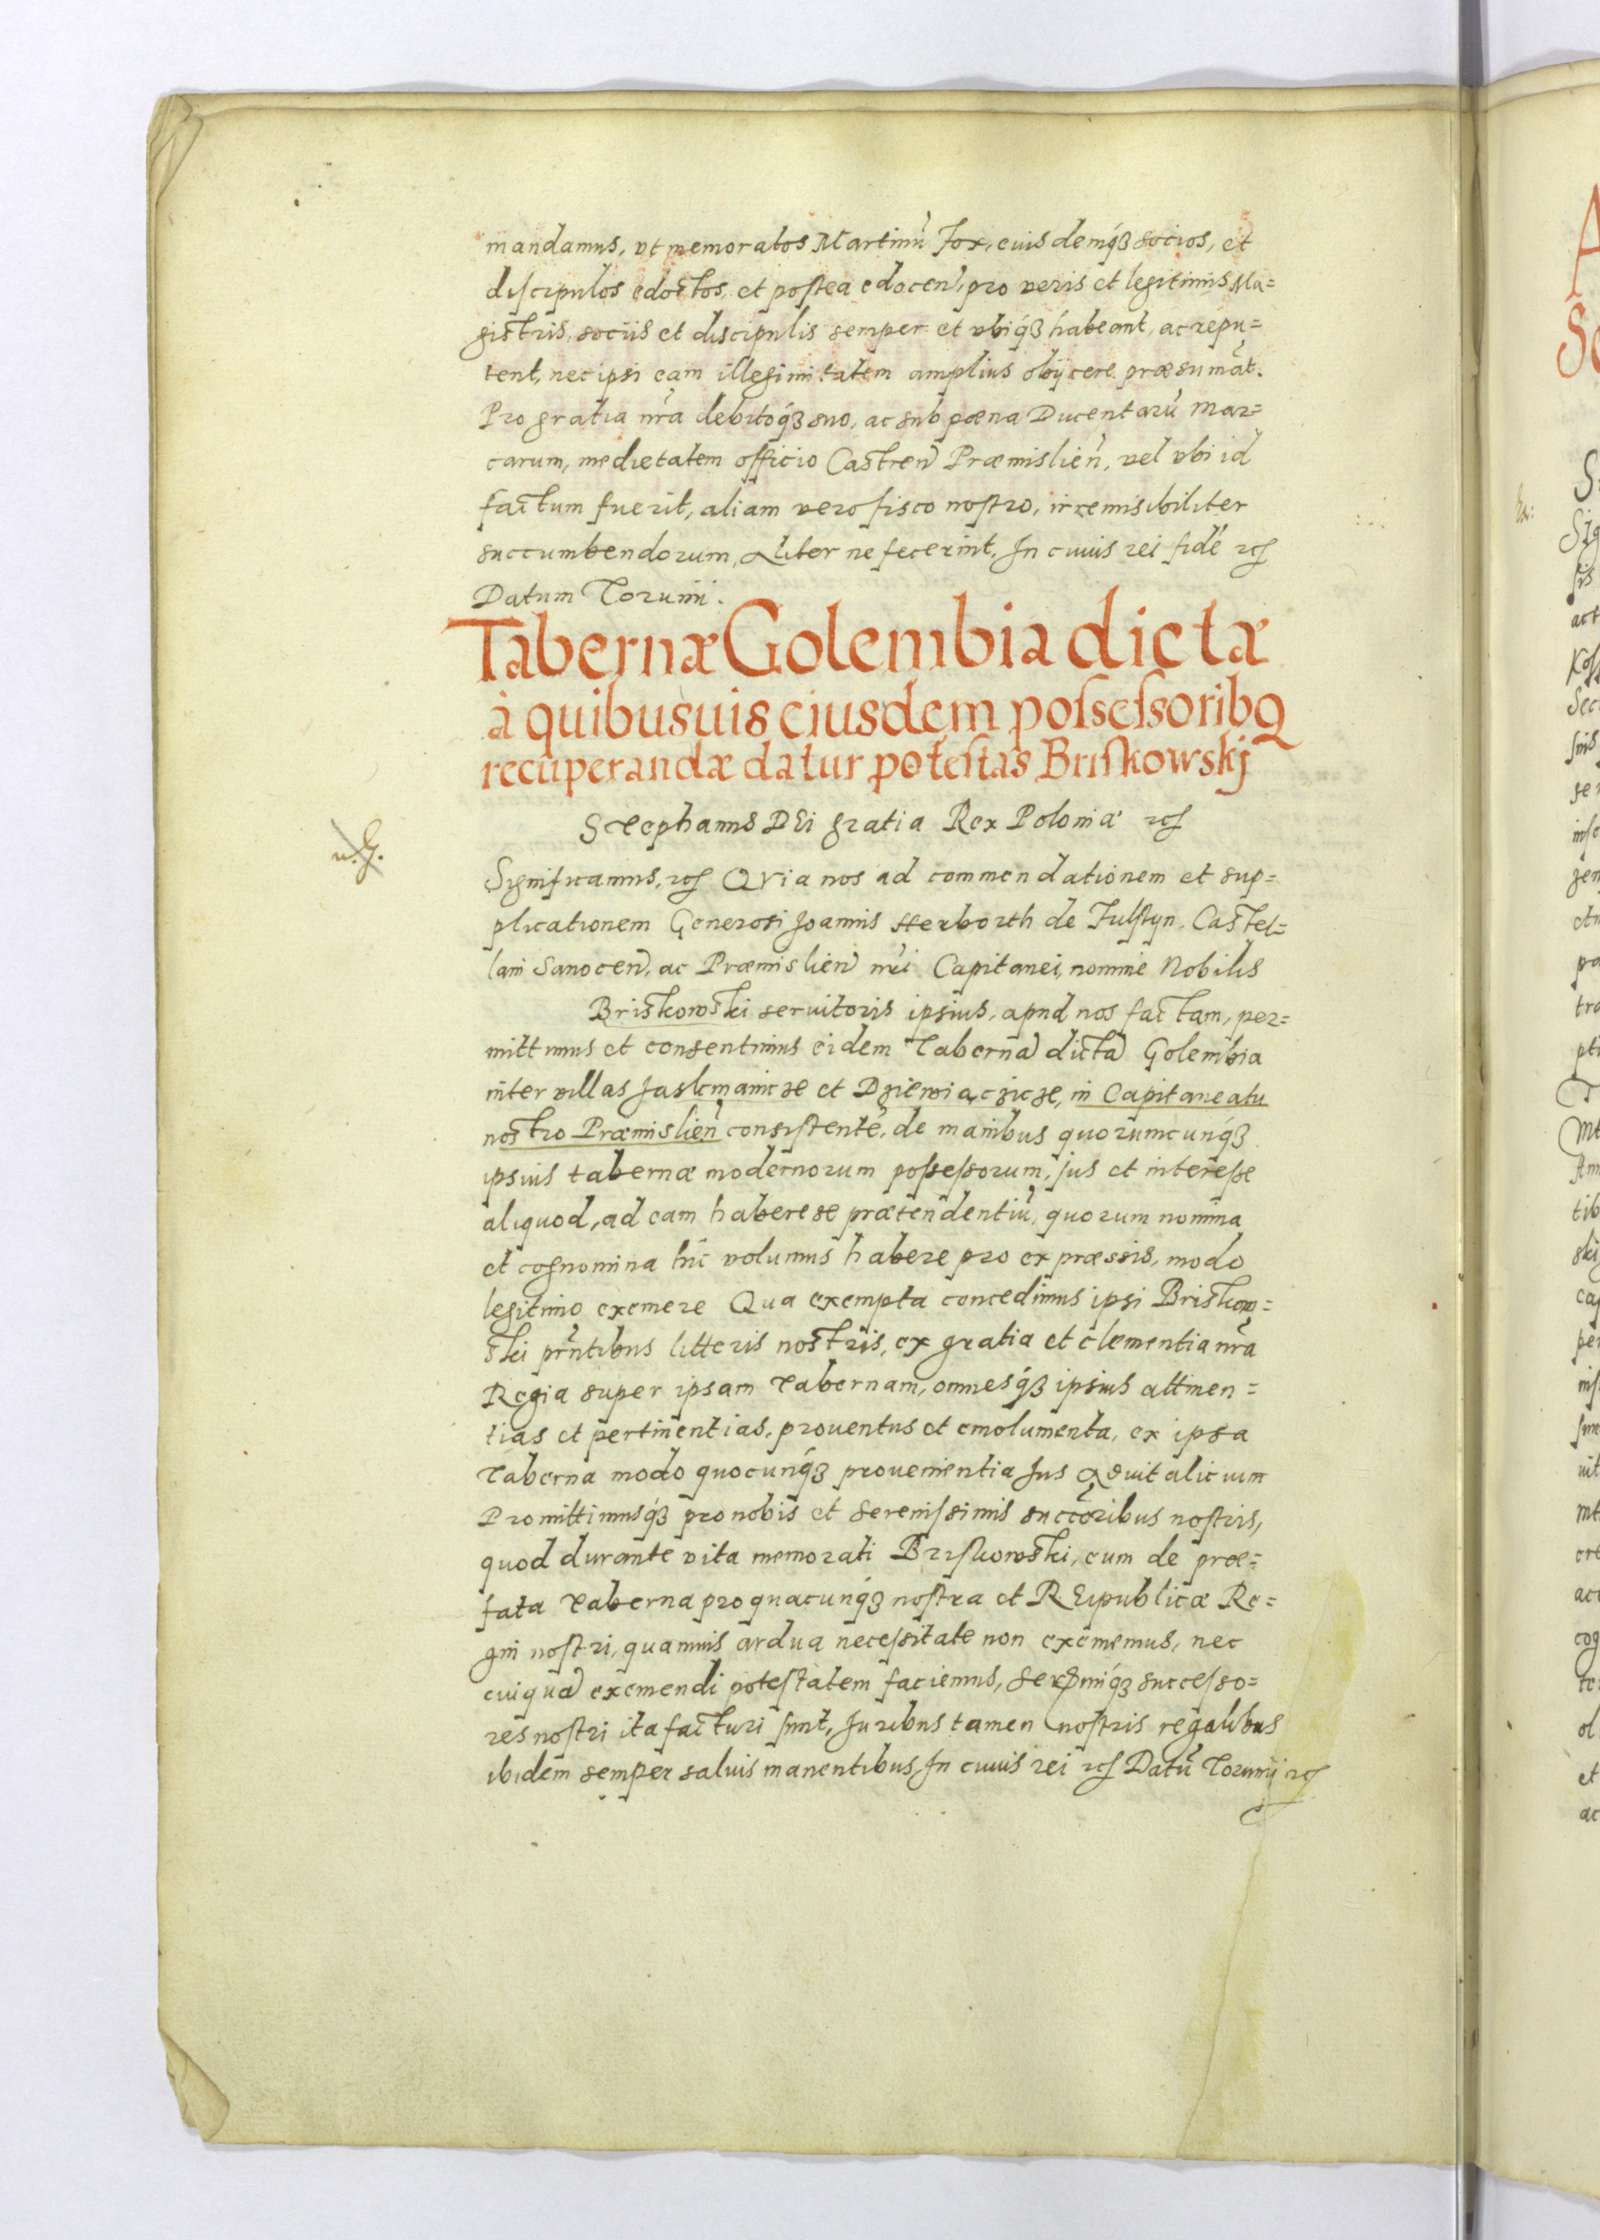 mandamus, vt memoratos Martinũ Fox, euisdemq́ꝫ socios, et
discipulos edoctos, et postea edocen̄, pro veris et legitimis Ma=
gistris, sociis et discipulis semper et vbiq́ꝫ habeant, ac repu=
tent, nec ipsi eam illegimitatem amplius obijcere præsumãt.
Pro gratia nr̃a debitoq́ꝫ suo, ac sub pœna Ducentarũ Mar=
carum, medietatem officio Castren̄ Præmislien̄, vel vbi id
factum fuerit, aliam vero fisco nostro, irremisibiliter
succumbendorum, Aliter ne fecerint, In cuius rei fidē ꝛcꝭ
Datum Torunii.
Tabernæ Golembia dictæ
à quibusuis eiusdem possessoribꝰ
recuperandæ datur potestas Briskowskj
Stephanus DEi gratia Rex Poloniæ ꝛcꝭ
n. G.
Significamus, ꝛcꝭ QVia nos ad commendationem et sup=
plicationem Generosi Joannis Herborth de Fulstyn, Castel=
lani Sanocen̄, ac Præmislien̄ nr̃i Capitanei, nomine Nobilis
Briskowski seruitoris ipsius, apud nos factam, per=
mittimus et consentimus eidem Tabernā dictā Golembia
inter villas Jaskmanicze et Dziewięczicze, in Capitaneatu
nostro Præmislien̄ consistentē, de manibus quorumcunq́ꝫ
ipsius tabernæ modernorum possessorum, jus et interesse
aliquod, ad eam habere se prætendentiũ, quorum nomina
et cognomina hic volumus habere pro expræssis, modo
legitimo exemere Qua exempta concedimus ipsi Briskow=
ski pr̃ntibus litteris nostris, ex gratia et clementia nr̃a
Regia super ipsam Tabernam, omnesq́ꝫ ipsius attinen=
tias et pertinentias, prouentus et emolumenta, ex ipsa
Taberna modo quocunq́ꝫ prouenientia Jus Aduitalicium
Promittimusq́ꝫ pro nobis et serenissimis succ̃oribus nostris,
quod durante vita memorati Briskowski, eum de præ=
fata Taberna pro quacunq́ꝫ nostra et REipublicæ Re=
gni nostri, quamuis ardua necessitate non exememus, nec
cuiquā exemendi potestatem faciemus, serẽmiq́ꝫ successo=
res nostri ita facturi sunt, Juribus tamen nostris regalibus
ibidem semper saluis manentibus, In cuius rei ꝛcꝭ Datũ Torunij ꝛcꝭ